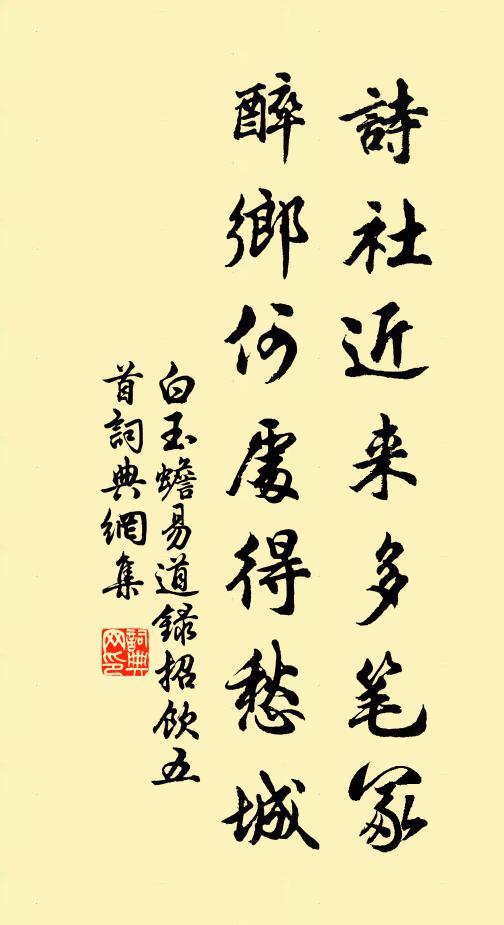 詩社近来多笔冢
醉鄉何處得愁城
白玉蟾易道錄招飲五
首詞典網集
詞典
网印